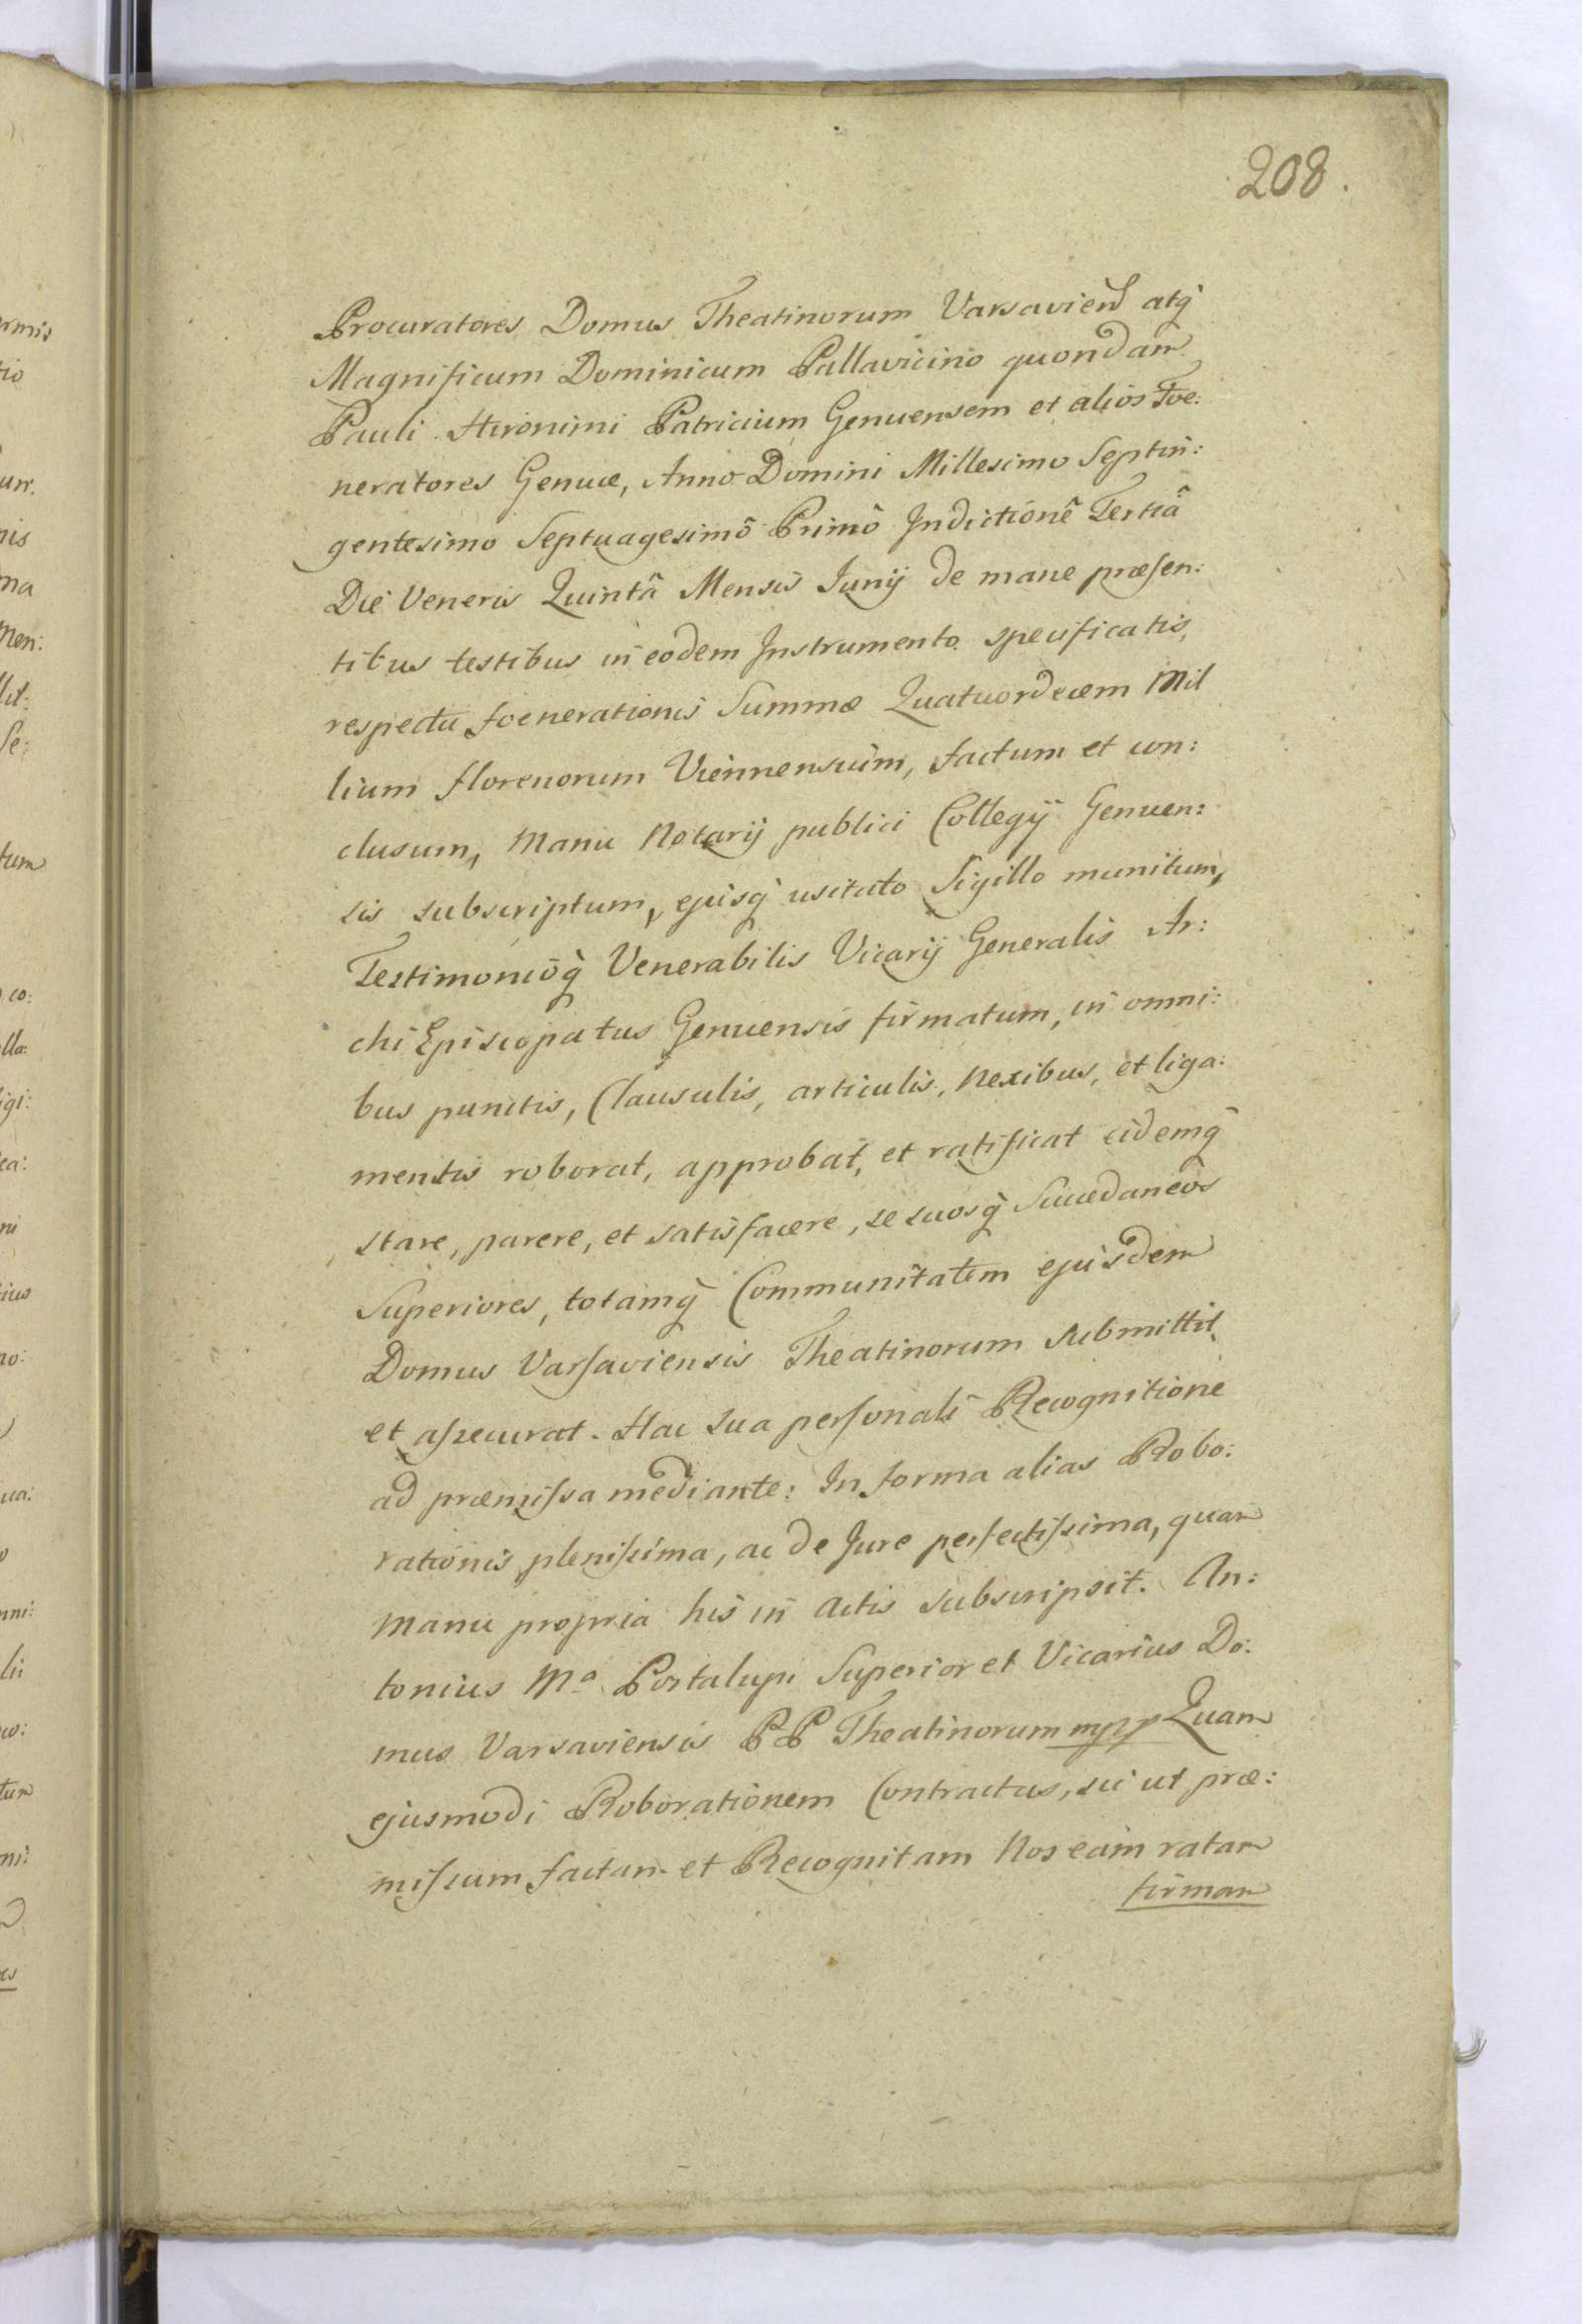 208.
Procuratores Domus Theatinorum Varsavien atq̀
Magnificum Dominicum Pallavicino quondam
Pauli Hironimi Patricium Genuensem et alios Foe:
neratores Genuæ, Anno Domini Millesimo Septin:
gentesimo Septuagesimô Primô Indictionê Tertiâ
Die Veneris Quintâ Mensis Junij de mane præsen:
tibus testibus in eodem Instrumento specificatis,
respectu foenerationis Summæ Quatuordecem Mil
lium florenorum Viennensium, factum et con:
clusum, Manu Notarij publici Collegij Genuen:
sis subscriptum, ejusq̀ usitato Sigillo munitum,
Testimonioq̀ Venerabilis Vicarij Generalis Ar:
chi Episcopatus Genuensis firmatum, in omni:
bus punctis, Clausulis, articulis, Nexibus, et liga:
mentis roborat, approbat, et ratificat eidemq̀
stare, parere, et satisfacere, se suosq̀ Succedaneos
Superiores, totamq̀ Communitatem ejusdem
Domus Varsaviensis Theatinorum submittit,
et assecurat. Hac sua personali Recognitione
ad præmissa mediante: In forma alias Robo:
rationis plenissima, ac de Jure perfectissima, quam
Manu propria his in Actis subscripsit. An:
tonius Mᵃ Portalupi Superior et Vicarius Do:
mus Varsaviensis PP Theatinorum mpp Quam
ejusmodi Roborationem Contractus, sic ut præ:
missum factam et Recognitam Nos eam ratam
firmam